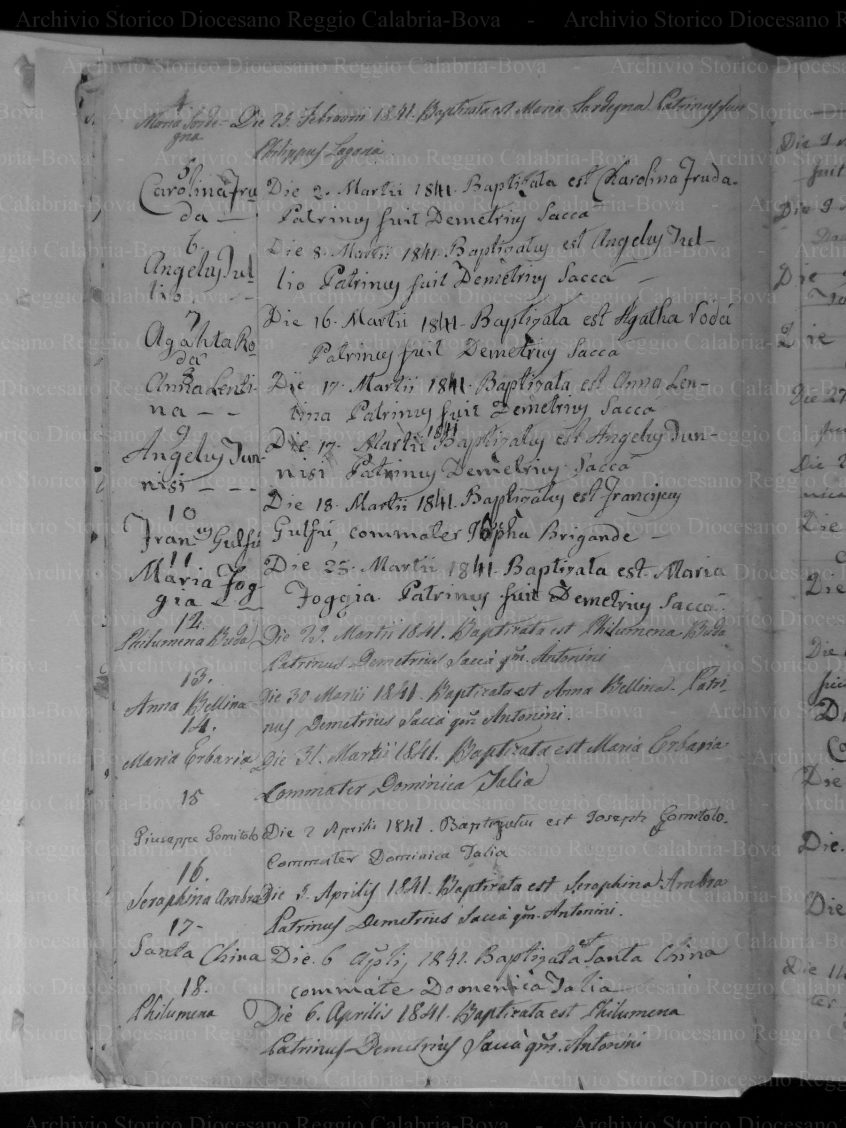 4
Maria Sarde- Die 25. Februarii 1841. Baptizata est Maria Sardegna Patrinus fuit
gna Philippus Laganà
5
Carolina Fru Die 2. Martii 1841. Baptizata est Charolina Fruda.
da — Patrinus fuit Demetrius Saccà
6.
Angelus Tul Die 8. Martii 1841 Baptizatus est Angelus Tul-
lio — lio Patrinus fuit Demetrius Saccà —
7
Agahta Ro Die 16. Martii 1841. Baptizata est Agatha Rodà
dà Patrinus fuit Demetrius Saccà
8
Anna Lenti- Die 17. Martii 1841. Baptizata est Anna Len-
na — — tina Patrinus fuit Demetrius Saccà
9 1841
Angelus Tun- Die 17. Martii Baptizatus est Angelus Tun-
nisi — — nisi Patrinus Demetrius Saccà
Die 18. Martii 1841. Baptizatus est Franciscus
10
Gulfù, commater Brigande —
11
Maria Fog- Die 25. Martii 1841. Baptizata est Maria
gia — Foggia. Patrinus fuit Demetrius Saccà.
12.
Philumena Buda Die 29. Martii 1841. Baptizata est Philumena Buda
Patrinus Demetrius Saccà qm. Antonini
13.
Anna Bellina Die 30 Martii 1841. Baptizata est Anna Bellina. Patri-
nus Demetrius Saccà qm Antonini.
14.
Maria Erbaria Die 31. Martii 1841. Baptizata est Maria Erbaria
Commater Dominica Talia
15
Giuseppe Gomitolo Die 2 Aprilis 1841. est Joseph Gomitolo.
Commater Dominica Talia
16.
Seraphina Ambra Die 3. Aprilis 1841. Baptizata est Seraphina Ambra
Patrinus Demetrius Saccà qm. Antonini.
17-
Santa China Die. 6 1841. Baptizata est Santa China
commate Domenica Talia
18.
Philumena Die 6. Aprilis 1841. Baptizata est Philumena
Patrinus Demetrius Saccà qm. Antonini
Archivio Storico Diocesano Reggio Calabria-Bova